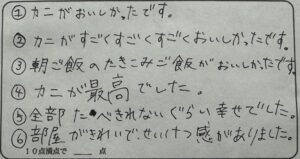 ① カニがおいしかったです。
② カニがすごくすごくすごくおいしかったです。
③ 朝ご飯のたきこみご飯がおいしかったです
④ カニが最高でした。
⑤ 全部たべきれないぐらい幸せでした。
⑥ 部屋がきれいでせいけつ感がありました。
10点満点で ___ 点